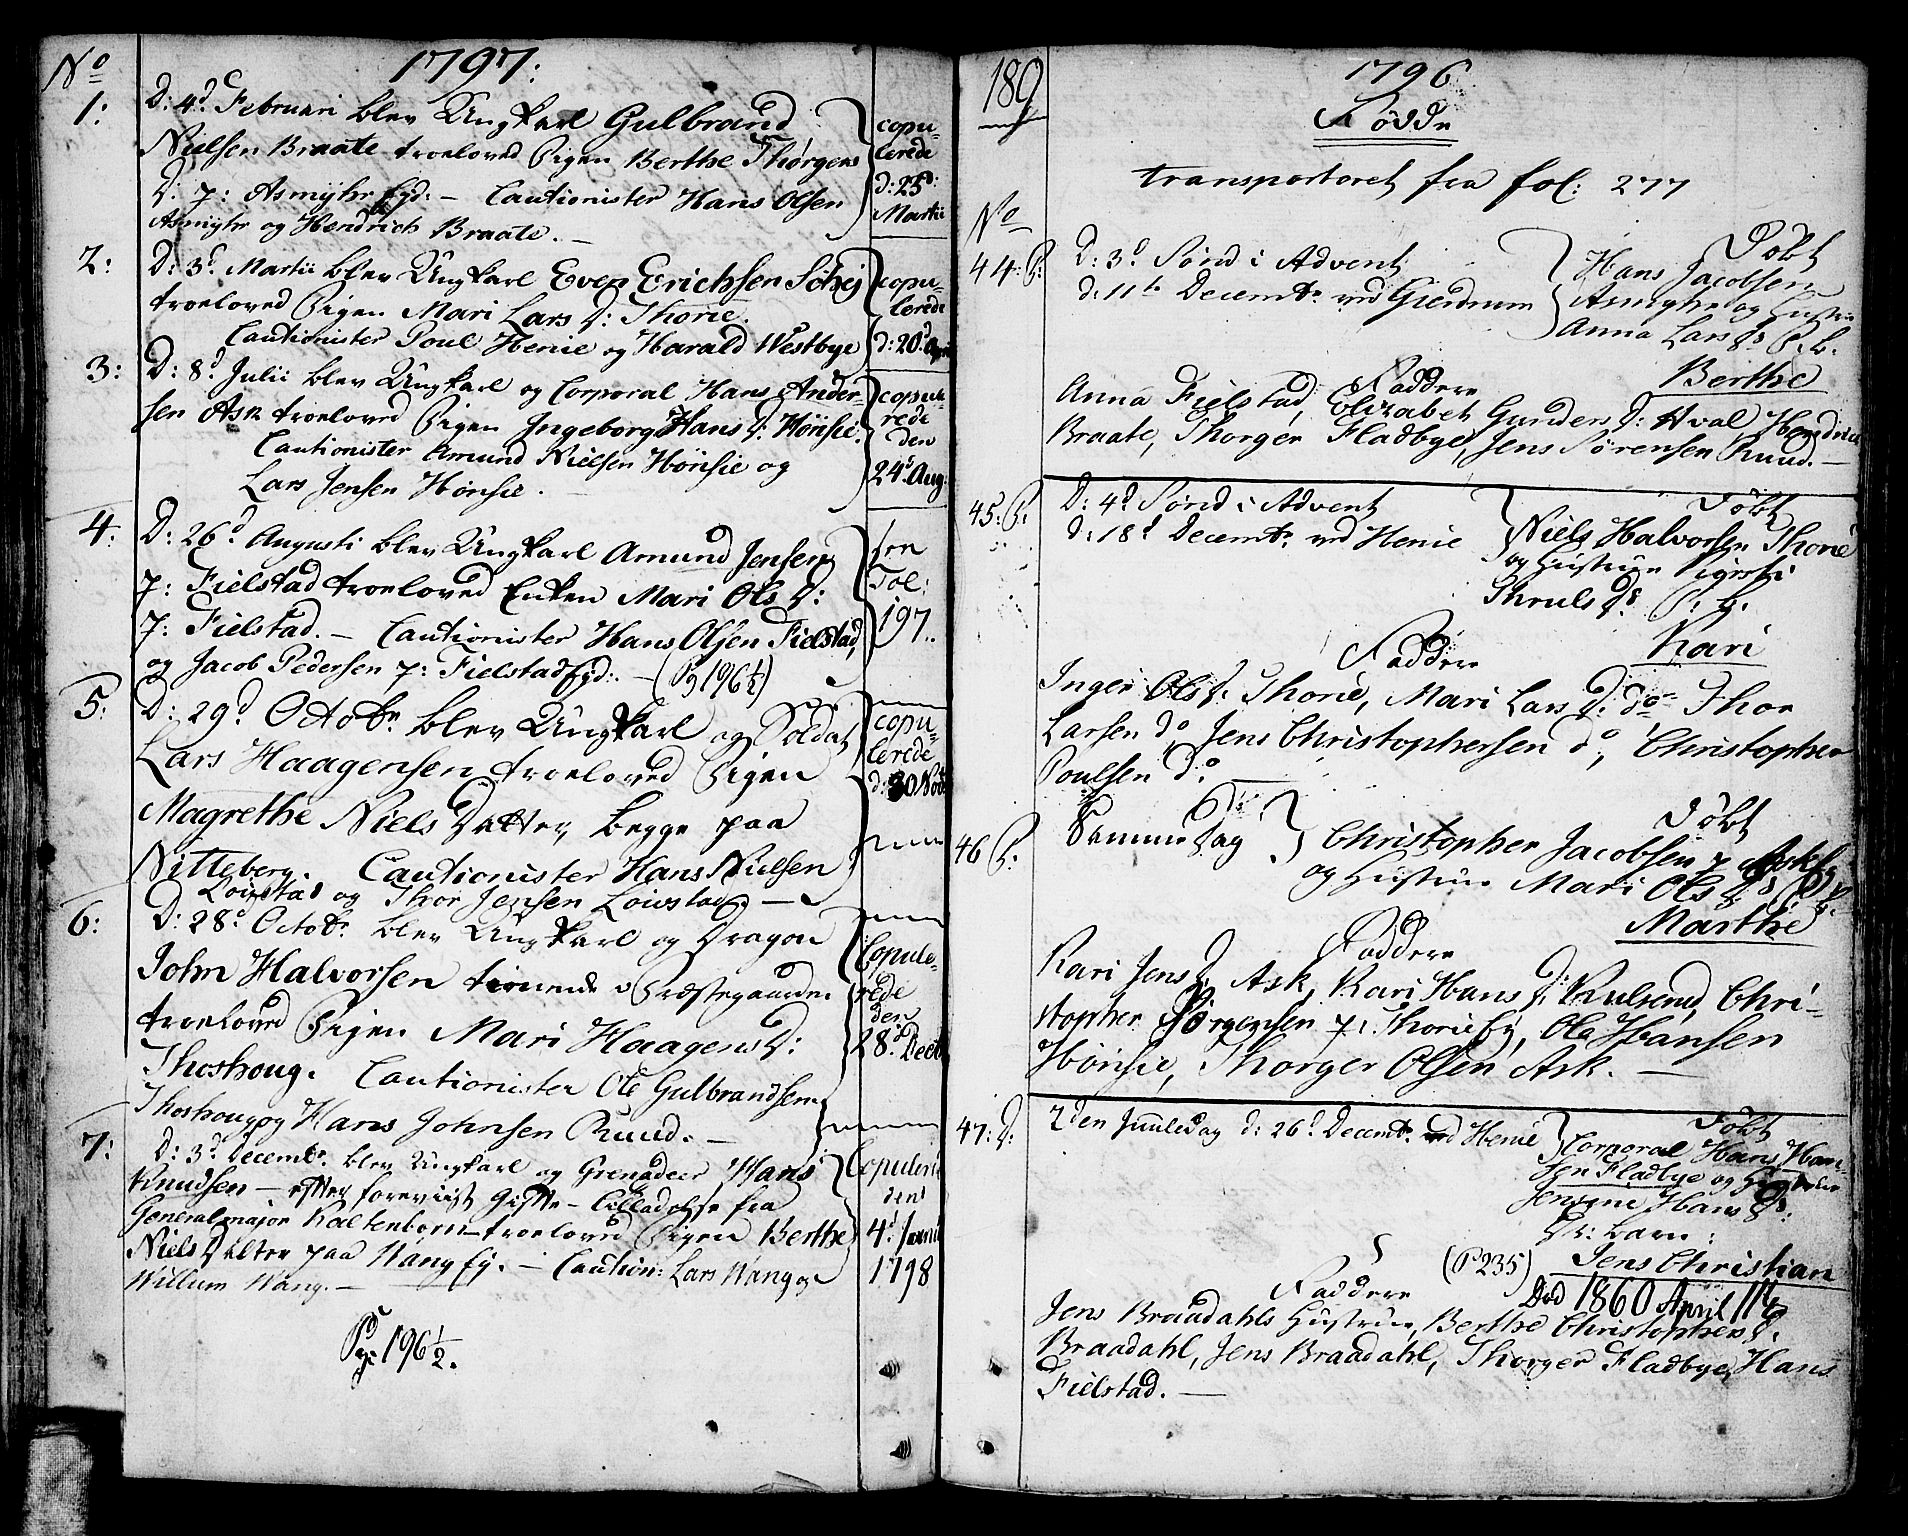 No
1797:
1:
D: 4d Februari blev Ungkarl Gulbrand
Nielsen Braate troeloved Pigen Berthe Thorgens
D: 7: Asmyhr Eyd. – Cautionister Hans Olsen
Asmyhr og Hendrich Braate. –
copu-
lerede
d: 25d:
Martii
2:
D: 3d Martii blev Ungkarl Even Erichsen
troeloved Pigen Mari Lars D: Thorie.
Cautionister Poul Henie og Harald Westbye
copu-
lerede
d: 20d April
3:
D: 8d Julii blev Ungkarl og Corporal Hans Ander-
sen Ask troeloved Pigen Ingeborg Hans D: Hønsie.
Cautionister Amund Nielsen Hønsie og
Lars Jensen Hønsie. –
copule-
rede
den
24d Aug:
4:
D: 26d Augusti blev Ungkarl Amund Jensen
7: Fielstad troeloved Enken Mari Ols D:
7: Fielstad. – Cautionister Hans Olsen Fielstad,
og Jacob Pedersen 7: Fielstad Eyd: – (Pg 196½)
see
Fol:
197.
5:
D: 29d Octobr blev Ungkarl og Soldat
Lars Haagensen troeloved Pigen
Magrethe Niels Datter, begge paa
Nitteberg. Cautionister Hans Nielsen
Løvstad og Thor Jensen Løvstad. –
copu-
lerede
d: 30 Novb
6:
D: 28d Octobr blev Ungkarl og Dragon
John Halvorsen tienende i Præstegaarden
troeloved Pigen Mari Haagens D:
Thoshoug. Cautionister Ole Gulbrandsen
Thoshoug og Hans Johnsen Ruud. –
Copule-
rede
den
28d Decb
7:
D: 3d Decembr blev Ungkarl og Grenadeer Hans
Knudsen – efter foreviist Gifte-Tilladelse fra
Generalmajor Kaltenborn – troeloved Pigen Berthe
Niels Datter paa Wang Ey. – Caution: Lars Wang og
Willum Wang. –
Copulered
den
4d Januarii
1798
Pg: 196½.
189
1796
Fødde
transporteret fra fol: 277
No
44: P:
D: 3d Sønd i Advent
d: 11te Decembr ved Gierdrum
Døbt
Hans Jacobsen
Asmyhr og Hustrue
Anna Lars Ds P. B.
Berthe
Faddere
Anna Fielstad, Elizabet Gunders D: Hval, Hendrich
Braate, Thorger Fladbye, Jens Sørensen Ruud. –
45: P:
D: 4d Sønd i Advent
d: 18d Decembr ved Henie
Døbt
Niels Halvorsen Thorie
og Hustrue Sigri
Thruls Ds P. B.
Kari
Faddere
Inger Ols D: Thorie, Mari Lars D: do Thor
Larsen do, Jens Christophersen do, Christopher
Poulsen do –
46 P:
Samme Dag
Døbt
Christopher Jacobsen 7 Ask Ey
og Hustrue Mari Ols Ds P. B.
Marthe
Faddere
Kari Jens D: Ask, Kari Hans D: Kulsrud, Chri-
stopher Jørgensen 7: Thorie Ey, Ole Hansen
Hønsie, Thorger Olsen Ask. –
47: D:
2den Juuledag d: 26d Decembr ved Henie
Døbt
Corporal Hans Han-
sen Fladbye og Hustrue
Hans Ds:
barn:
Jens Christian
(P 235)
Død 1860 April 11te
Faddere
Jens Braadahls Hustrue, Berthe Christophers D:
Braadahl, Jens Braadahl, Thorger Fladbye, Hans
Fielstad. –